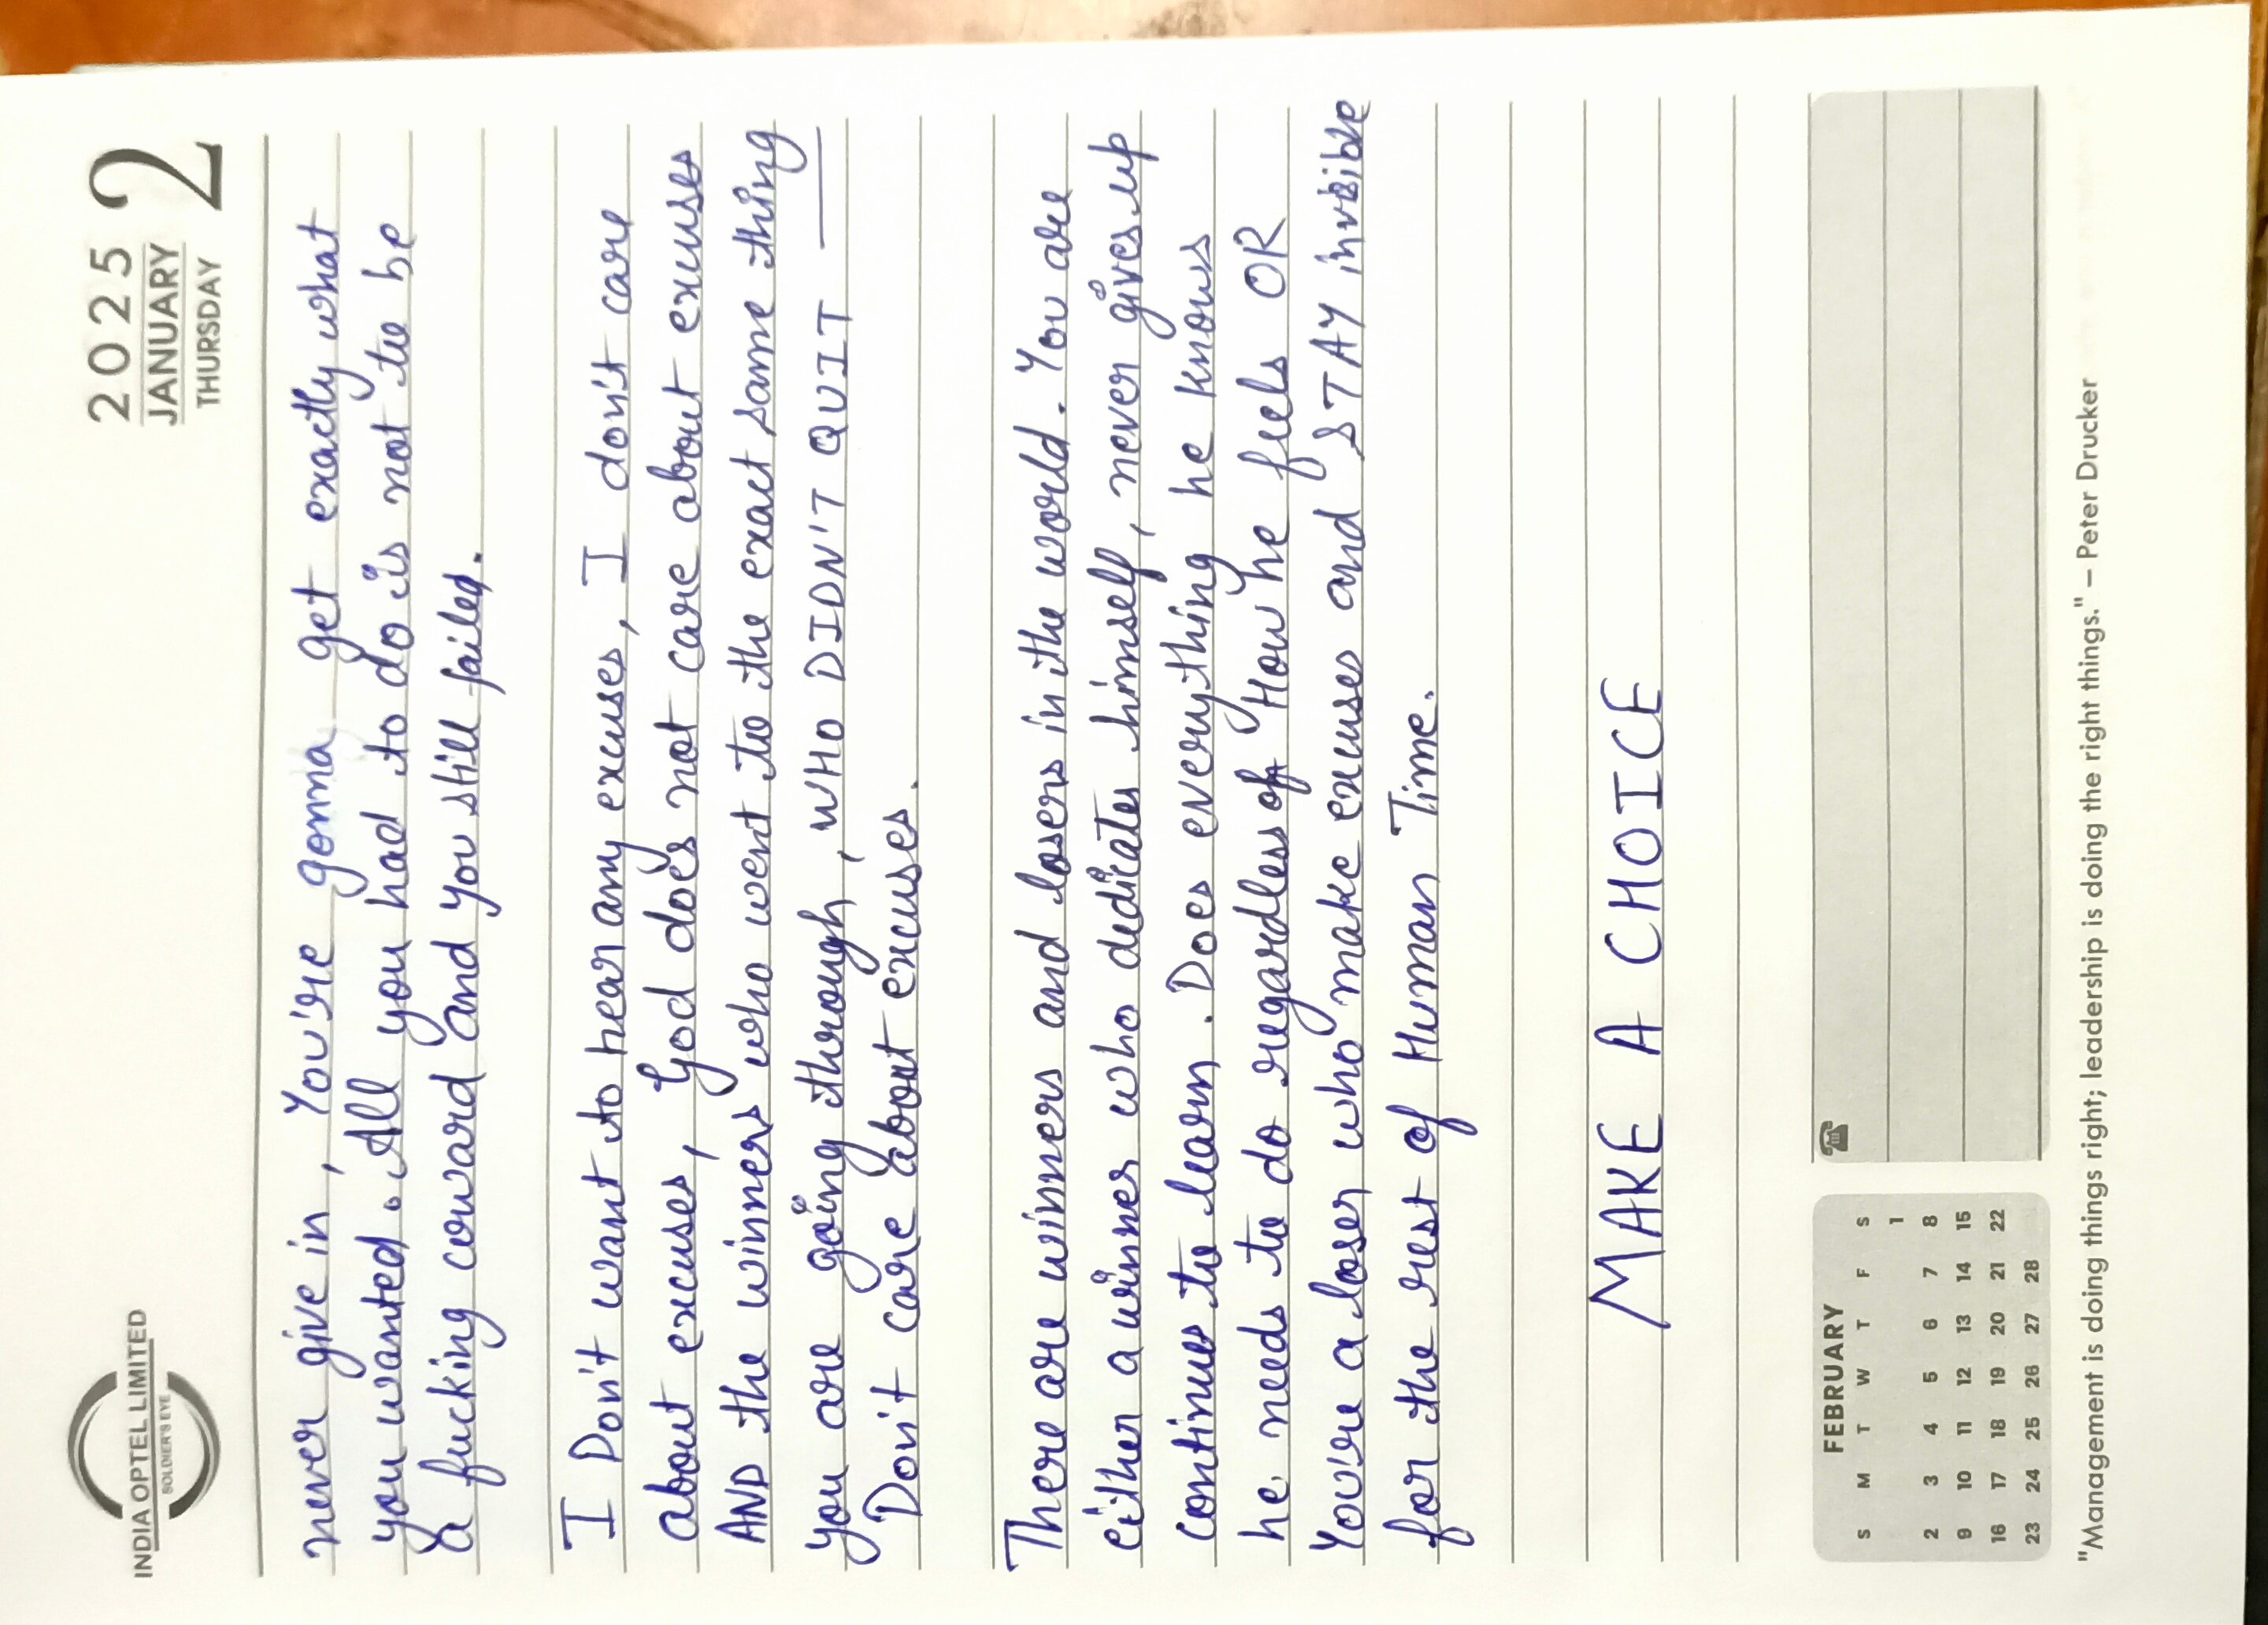 INDIA OPTEL LIMITED
SOLDIER'S EYE
2025
JANUARY
THURSDAY
2
never give in, You're gonna get exactly what
you wanted. All you had to do is not to be
a fucking coward and you still failed.
I Don't want to hear any excuses, I don't care
about excuses, God does not care about excuses
AND the winners who went to the exact same thing
you are going through, WHO DIDN'T QUIT —
Don't care about excuses.
There are winners and losers in the world. You are
either a winner who dedicates himself, never gives up
continues to learn. Does everything he knows
he needs to do regardless of How he feels OR
You're a loser who make excuses and STAY invisible
for the rest of Human Time.
MAKE A CHOICE
FEBRUARY
S M T W T F S
1
2 3 4 5 6 7 8
9 10 11 12 13 14 15
16 17 18 19 20 21 22
23 24 25 26 27 28
"Management is doing things right; leadership is doing the right things." – Peter Drucker